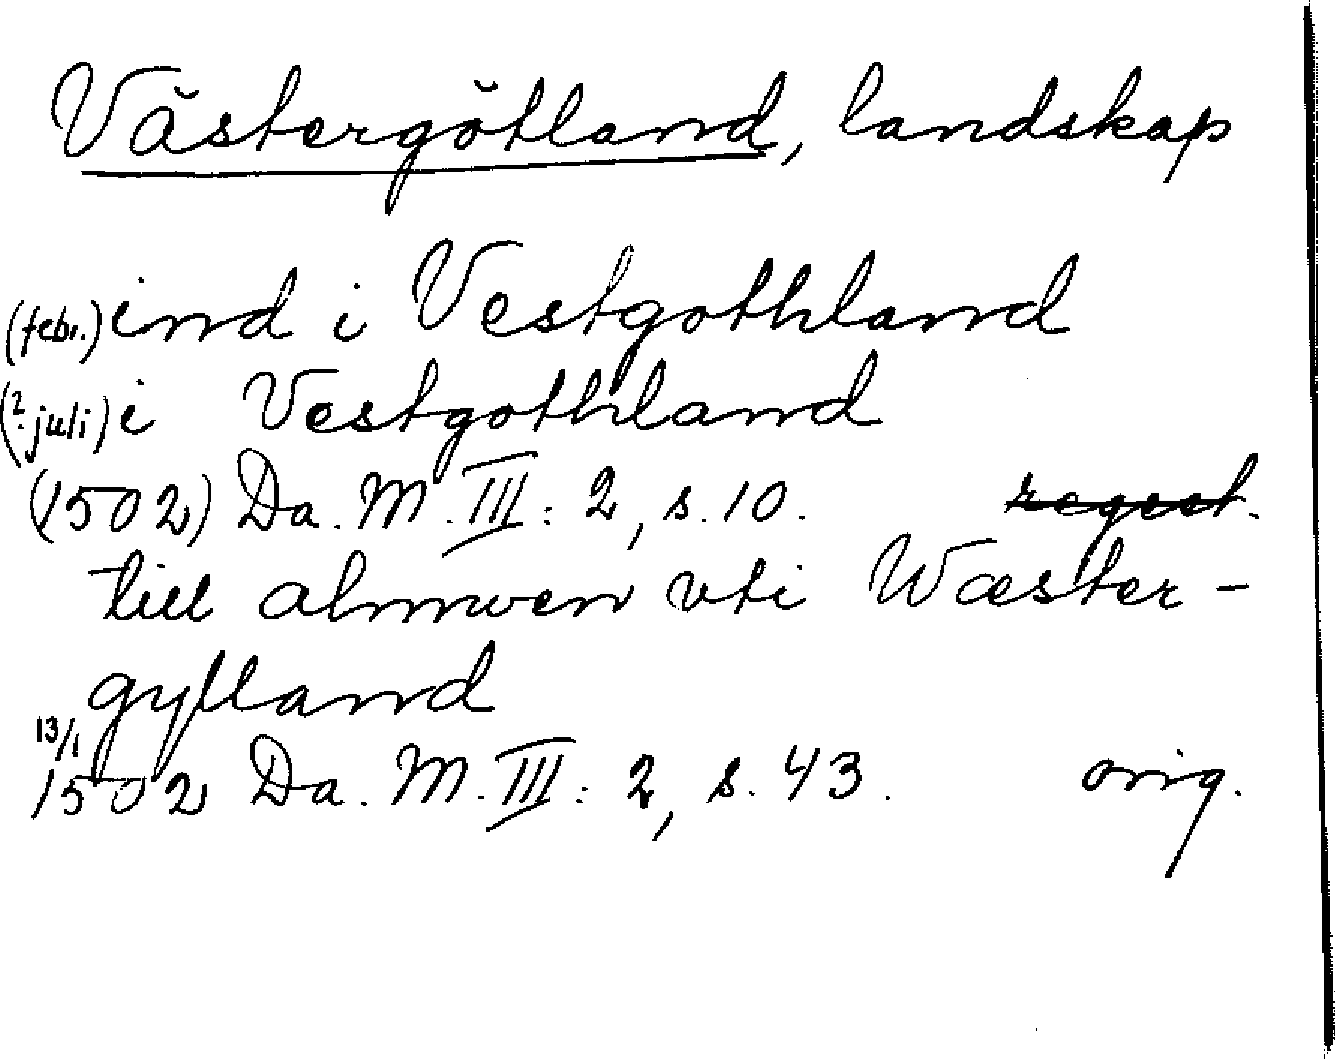 Västergötland, landskap
(febr.) ind i Vestgothland
(2. juli) i Vestgothland
(1502) Da. M. III: 2, s. 10. regest.
till almwen vti Wæster-
gylland
13/1
1502 Da. M. III: 2, s. 43. orig.